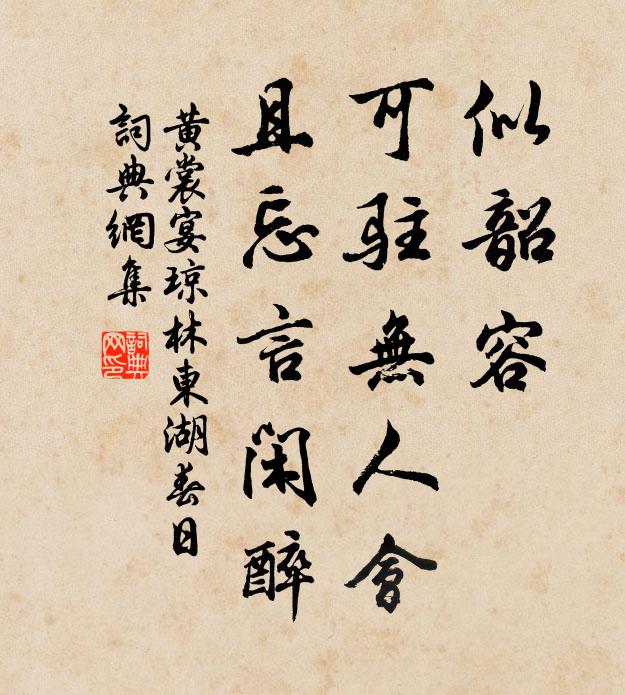 似韶容
可駐無人會
且忘言閑醉
黄裳宴琼林東湖春日
詞典網集
詞典网印